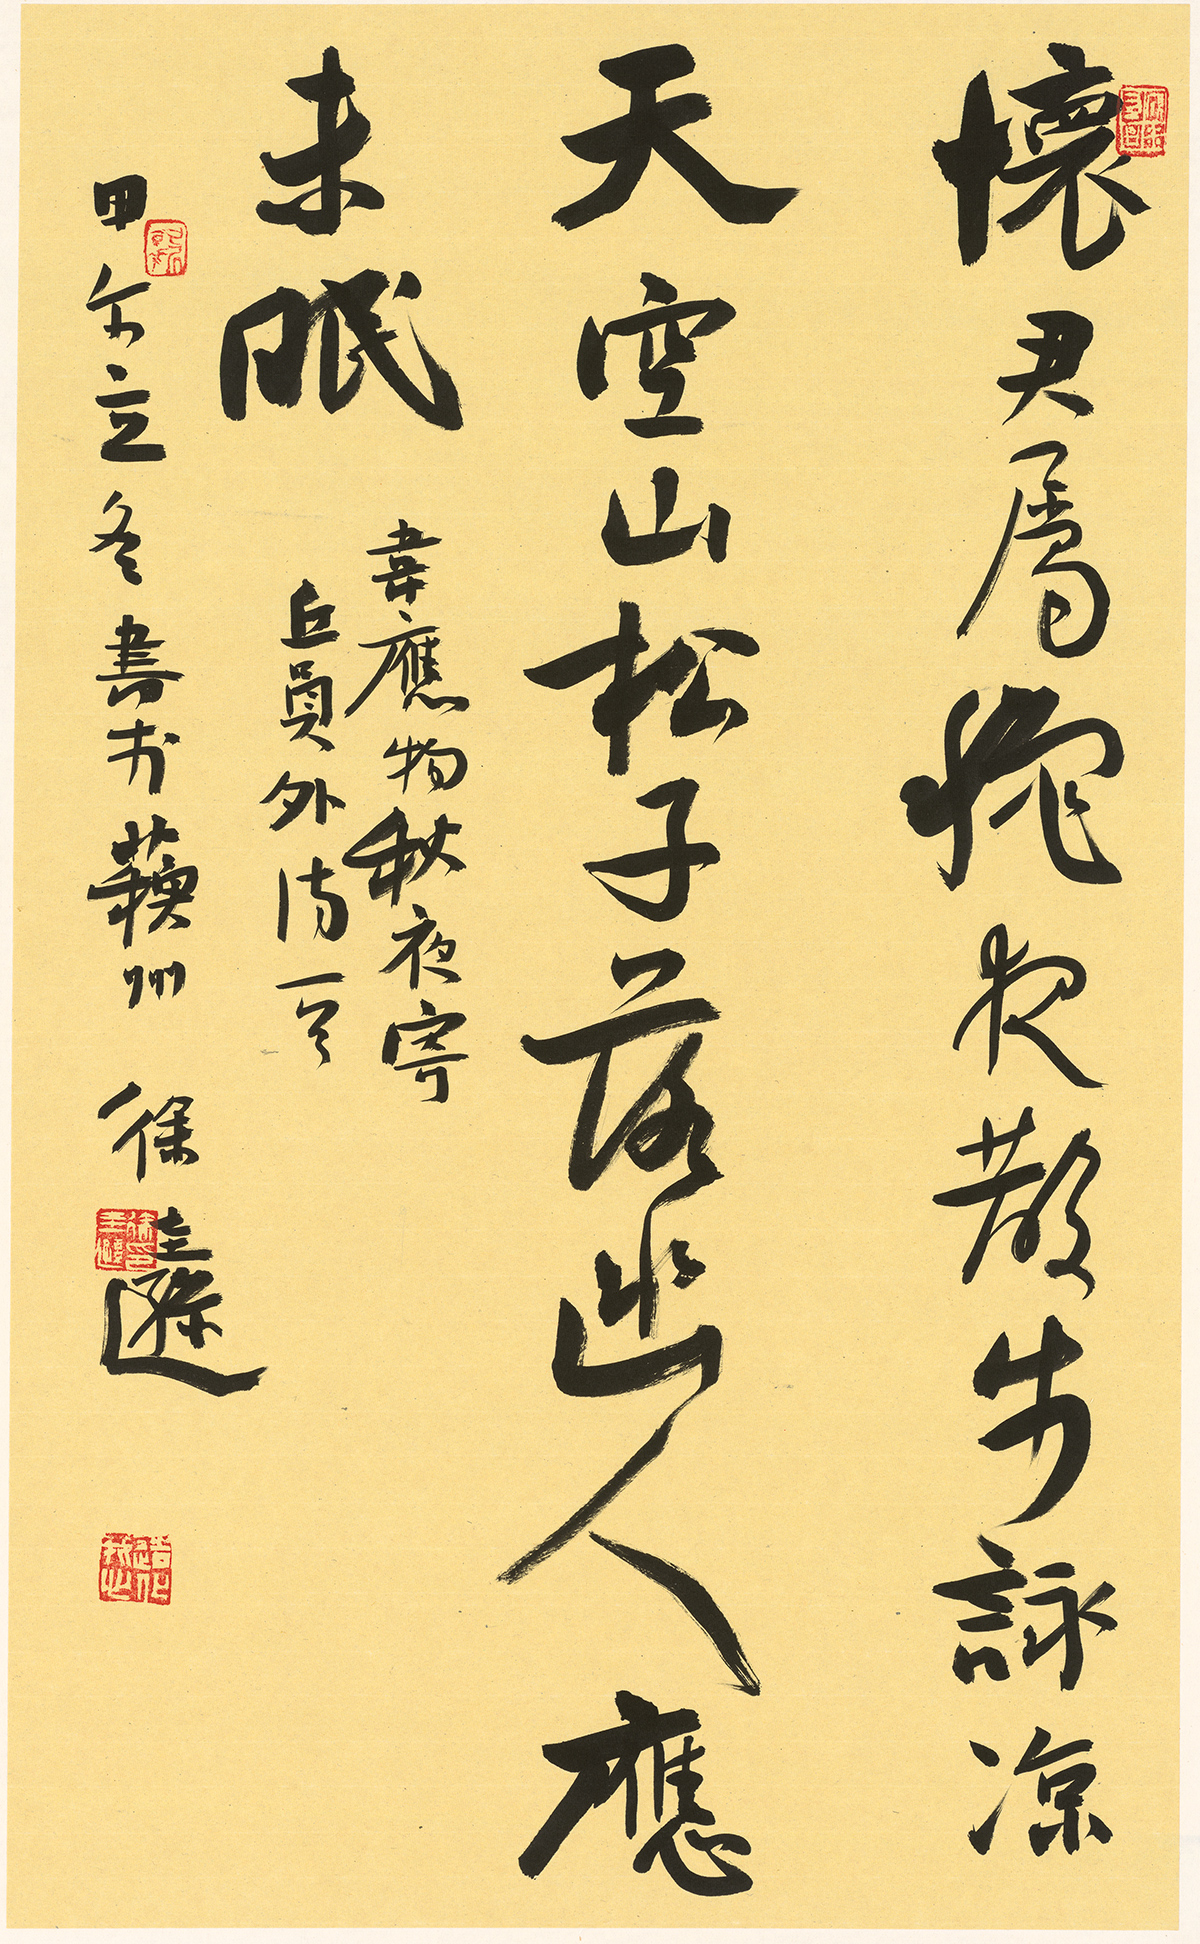 懷君屬秋夜散步詠涼
天空山松子落幽人應
未眠
韋應物秋夜寄
丘員外詩一首
甲午立冬書於蘇州 徐圭遜